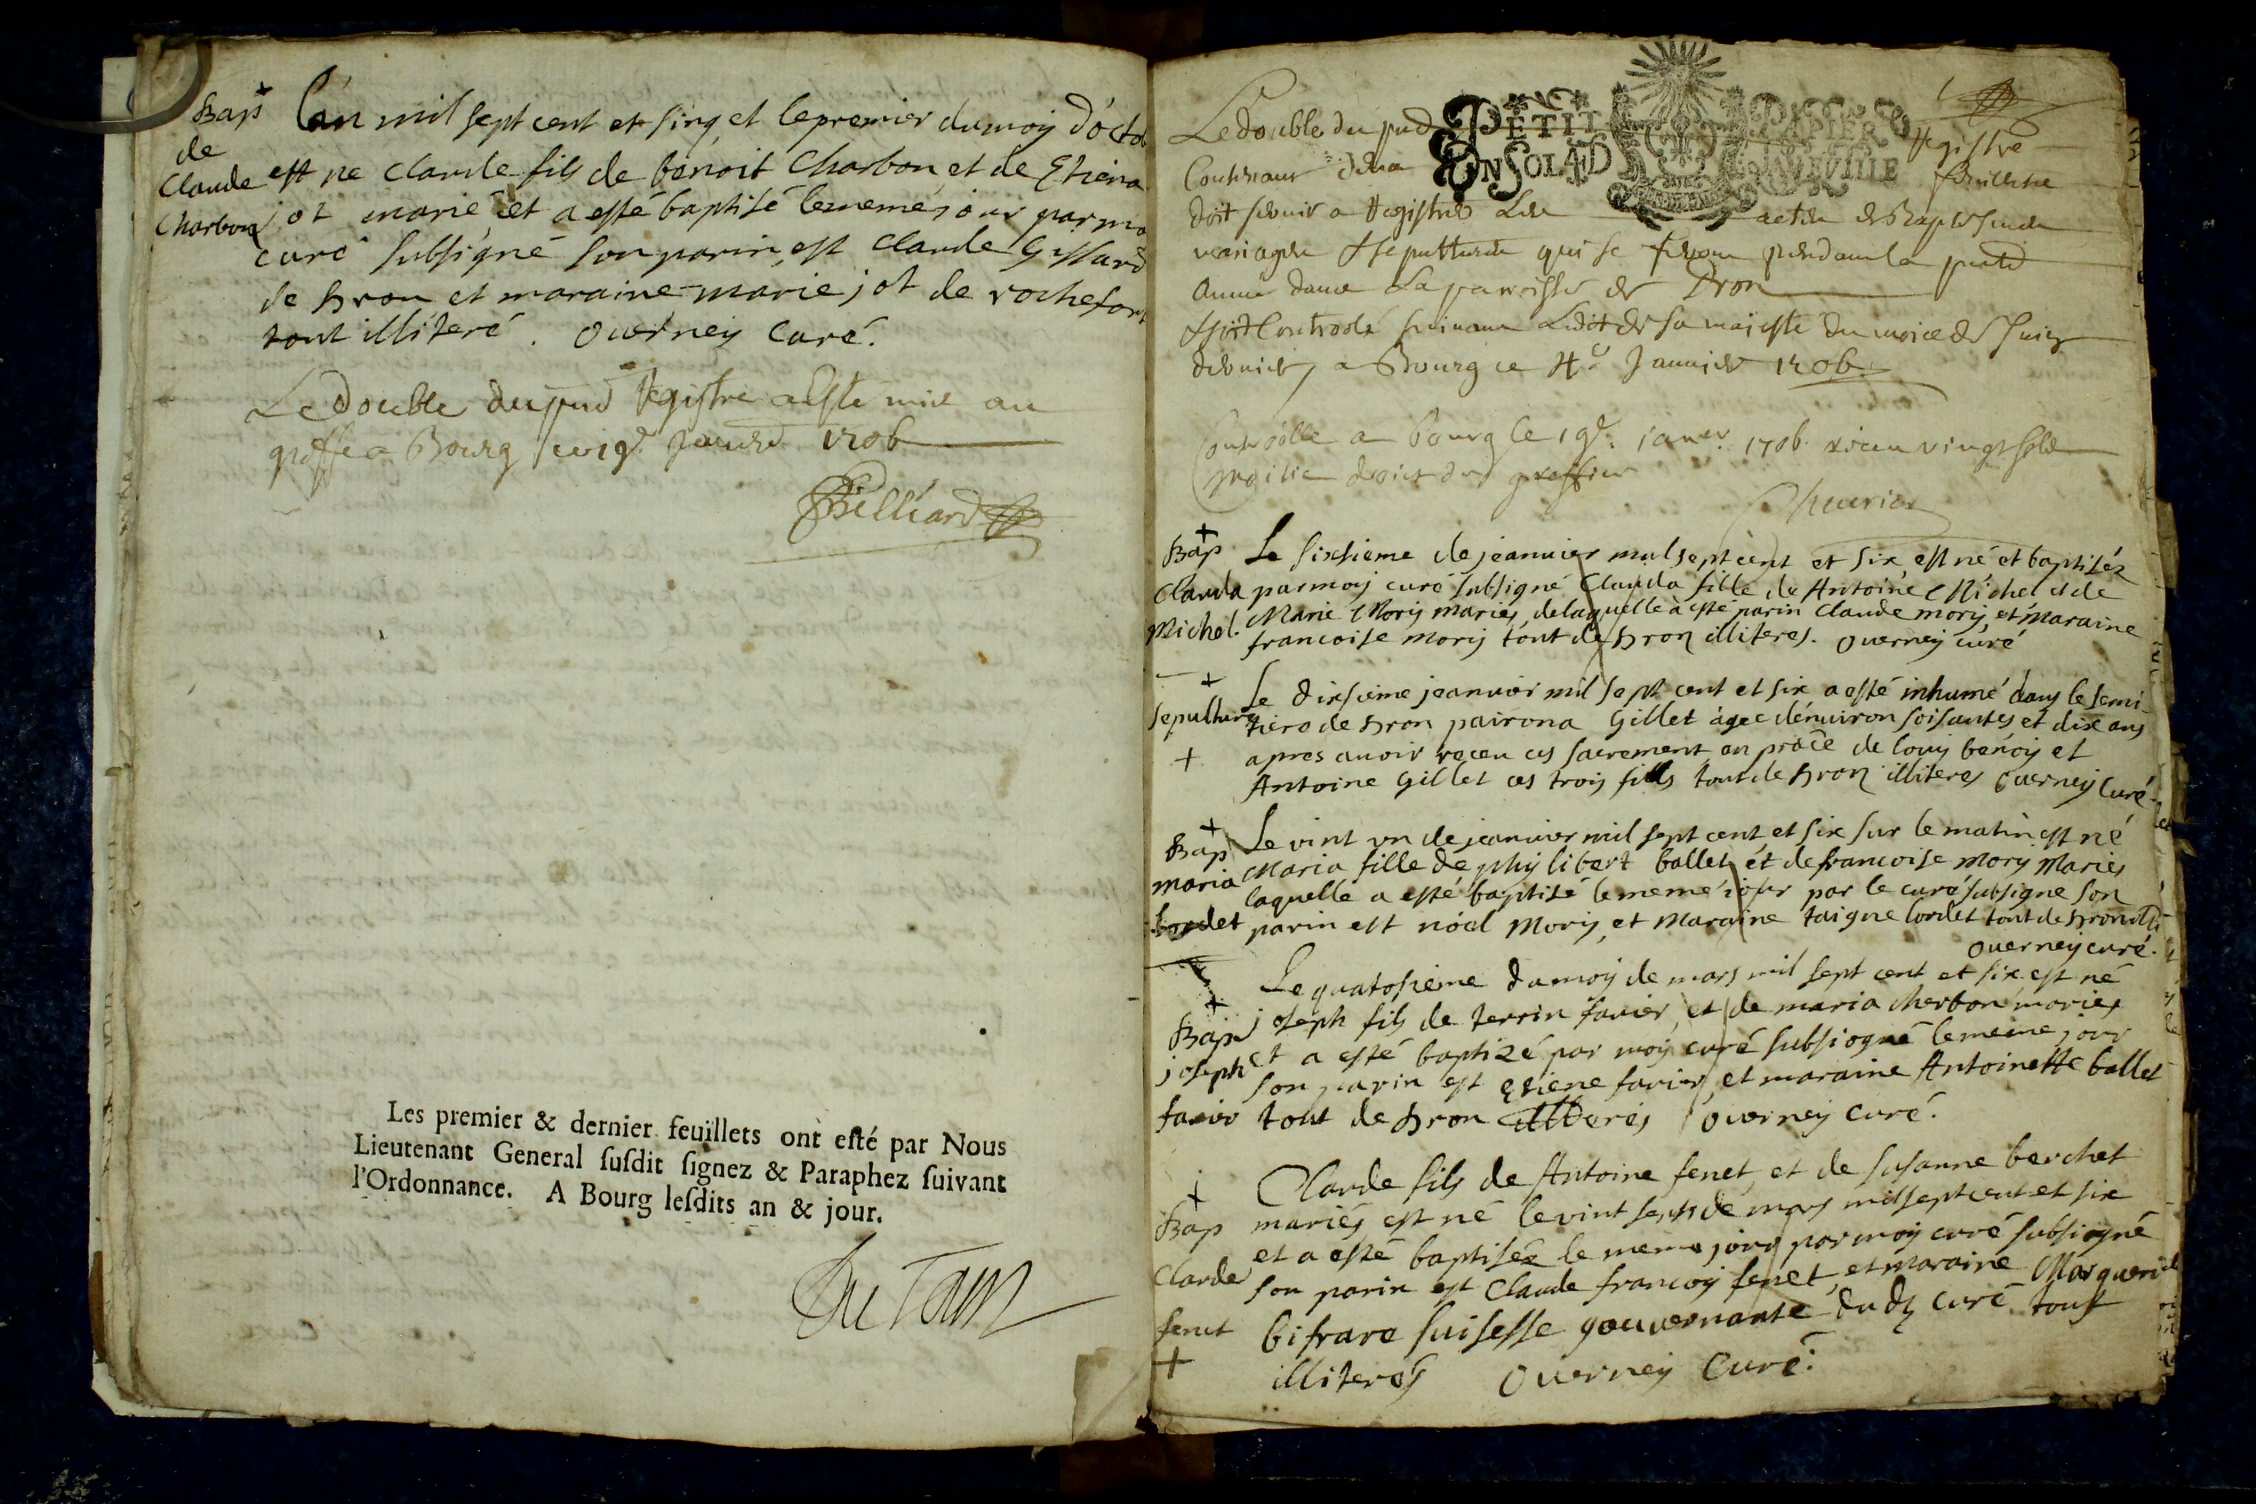 Bap
de
Claude
Charbon
L'an mil sept cent et sinq et le premier du moy d'octob
est ne claude fils de benoit Charbon et de Etiena
jot marié et a esté baptisé le meme jour par mo
curé subsigné son parin est claude Gissard
de Dron et maraine marie jot de rochefort
tout illiteré. Ouerney Curé.
Le Double du pnt Registre a esté mis au
greffe a Bourg ce 19e Janvr 1706
Billiard
Les premier & dernier feuïllets ont esté par Nous
Lieutenant General ſuſdit ſignez & Paraphez ſuivant
l'Ordonnance. A Bourg leſdits an & jour.
PETIT PAPIER
EN SOL LA FD NEVILLE
Le double du pnt Registre
Contenant feuillets
doit servir a Registrer Les actes de Baptesmes
mariages & sepultures qui se feront pendant la pnte
année dans La parroisse de Dron
& soit Controolé suivant Ledit de sa majesté du mois de Juin
dernier, a Bourg ce 4e Janvier 1706
Controolle a bourg le 19e: janer 1706. receu vingt sols
moitie droict du greffier
Cheurier
Bap
Clauda
Michel.
Le sixsieme de jeanuier mil sept cent et six est né et baptiséz
par moy curé subsigné Clauda fille de Antoine Michel et de
Marie Mory mariés, de laquelle a esté parin Claude mory et maraine
francoise mory tout de Dron illiteres. Ouerney curé
sepulture
Le dixsieme jeanuier mil sept cent et six a esté inhumé dans le semi-
tiere de Dron pairona Gillet agee d'enuiron soisantes et dix ans
apres auoir receu ces sacrement, an prace de louy benoy et
Antoine Gillet ces trois fills tout de Dron illiteres Ouerney Curé
Bap
maria
bordet
Le vint vn de jeanuier mil sept cent et six sur le matin est né
Maria fille de phylibert ballet et de francoise mory Mariés
laquelle a esté baptisé le meme jour par le curé subsigne son
parin est noel Mory et Maraine taigne bordet tout de Dron illi
Ouerney curé.
Bap
joseph
favier
Le quatosieme du moy de mars mil sept cent et six est né
joseph fils de terrin favier, et de maria cherbon mariés
et a esté baptizé par moy curé subsiogné le meme jour
son parin est Etiene favier, et maraine Antoinette ballet
tout de Dron illiterés Ouerney Curé.
Bap
Claude
fenet
Claude fils de Antoine fenet, et de susanne berchet
mariés est né le vint sept de mars mil sept cent et six
et a esté baptiséz le meme jour par moy curé subsigné
son parin est Claude francoy fenet, et maraine Marguerite
bifrare suisesse gouuernante du dt curé tous
illiterés Ouerney Curé: